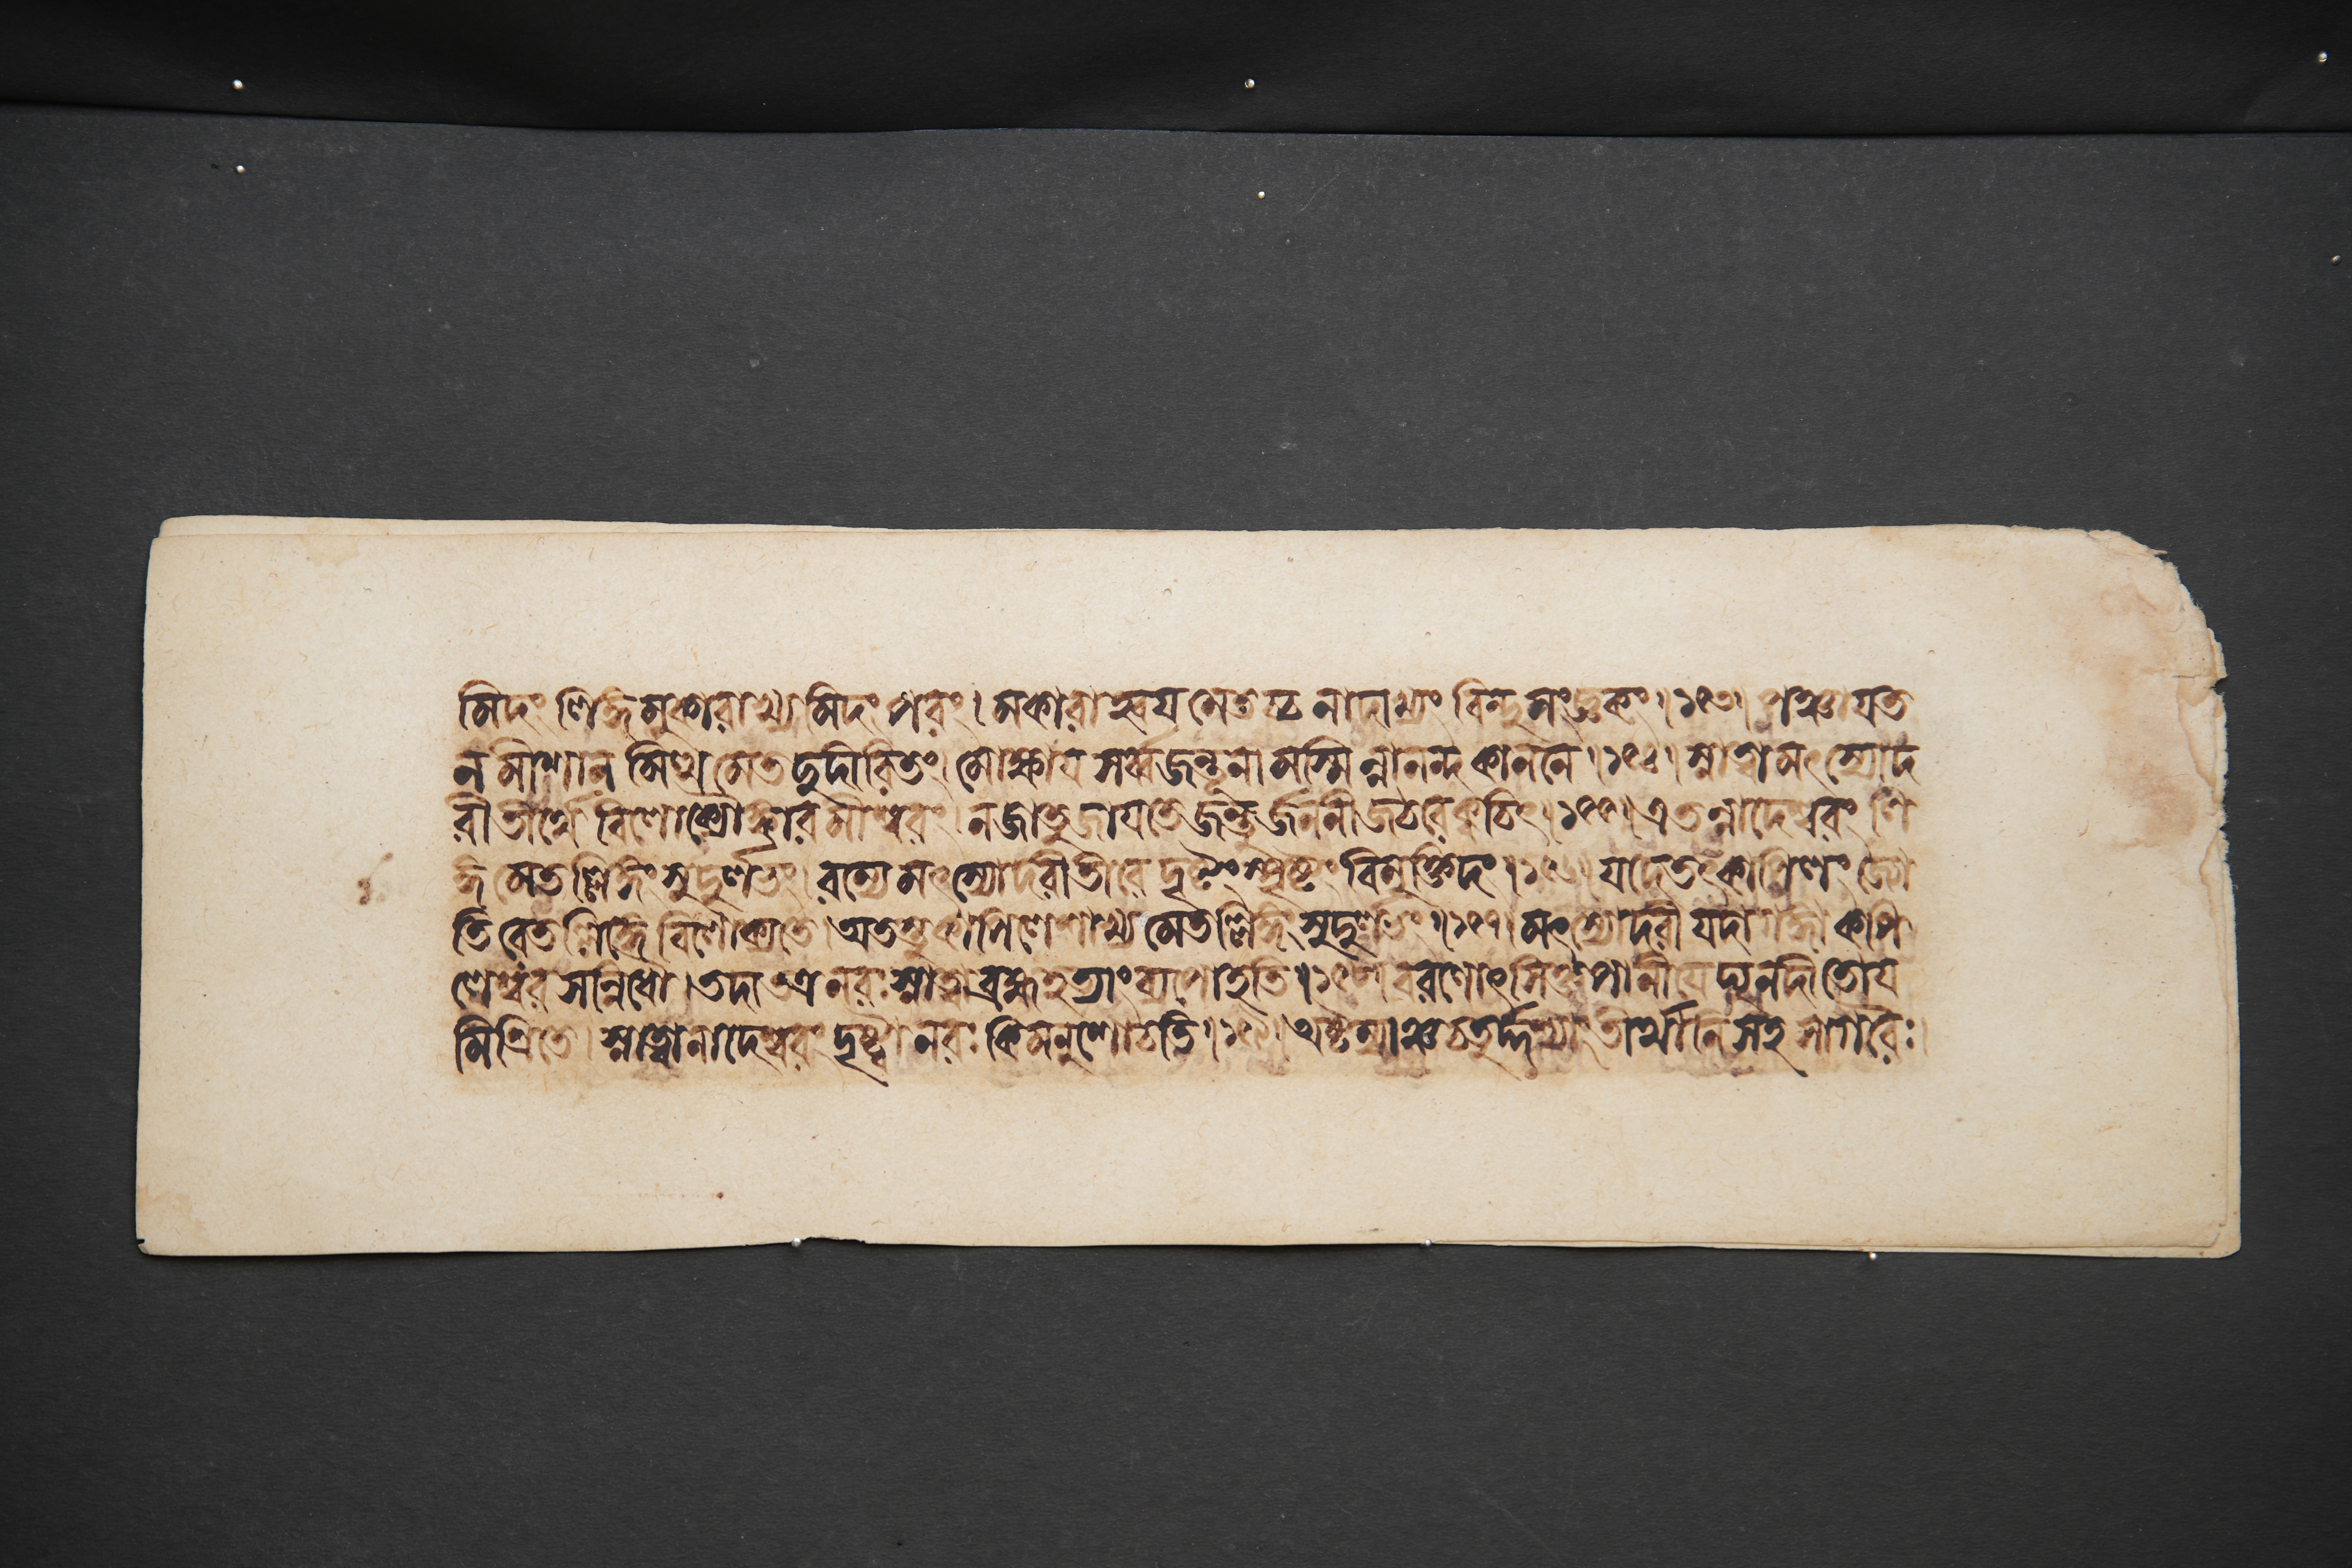 মিদং লিঙ্গমুকারাখ্যমিদং পরং। মকারাহ্বযমেতচ্চ নাদাখ্যং বিন্দুসংজ্ঞকং॥১৫৩॥ পঞ্চাযত
নমীশানমিত্থমেতদুদীরিতং। মোক্ষায সর্ব্বজন্তূনামস্মিন্নানন্দকাননে॥১৫৪॥ স্নাত্বা মৎস্যোদ
রীতীর্থে বিলোক্যোঙ্কারমীশ্বরং। ন জাতু জাযতে জন্তুর্জননীজঠরে ক্বচিৎ॥১৫৫॥ এতন্নাদেশ্বরং লি
ঙ্গমেতল্লিঙ্গং সুদুর্লভং। রম্যে মৎস্যোদরীতীরে দৃষ্টং স্পৃষ্টং বিমুক্তিদং॥১৫৬॥ যদৈতৎ কাপিলং জ্যো
তিরেতল্লিঙ্গে বিলোক্যতে। অতস্তু কপিলেশাখ্যমেতল্লিঙ্গং সুদুর্লভং॥১৫৭॥ মৎস্যোদরী যদা গঙ্গা কপি
লেশ্বরসন্নিধৌ। তদা তত্র নরঃ স্নাত্বা ব্রহ্মহত্যাং ব্যপোহতি॥১৫৮॥ বরণোৎসিক্তপানীযে দ্যুনদীতোয
মিশ্রিতে। স্নাত্বা নাদেশ্বরং দৃষ্ট্বা নরঃ কিমনুশোচতি॥১৫৯॥ অষ্টম্যাঞ্চ চতুর্দ্দশ্যাং তীর্থানি সহ সাগরৈঃ